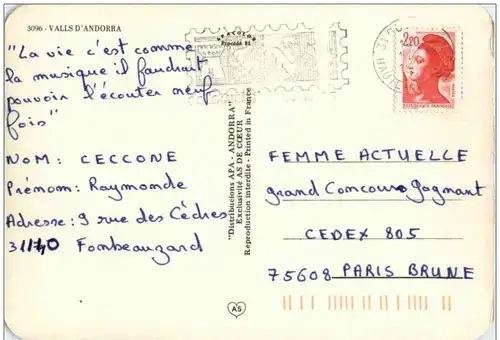 3096 - VALLS D'ANDORRA
"La vie c'est comme
la musique il faudrait
pouvoir l'écouter neuf
fois"
NOM: CECCONE
Prénom: Raymonde
Adresse: 9 rue des Cèdres
31140 Fonbeauzard
"Distribucions APA - ANDORRA"
Exclusivité AS DE CŒUR
Reproduction interdite - Printed in France
SPACOLOR
Procédé 81
2,20
FEMME ACTUELLE
grand Concours Gagnant
CEDEX 805
75608 PARIS BRUNE
AS